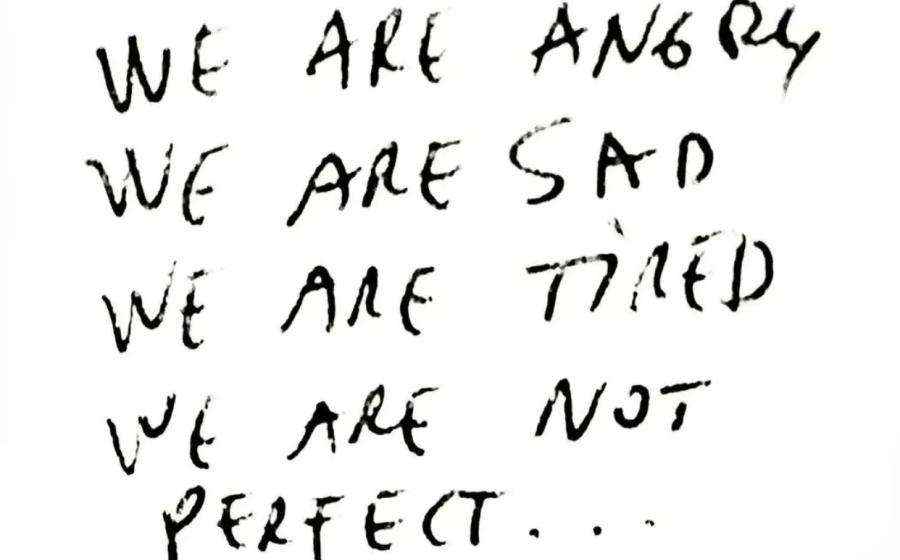 WE ARE ANGRY
WE ARE SAD
WE ARE TIRED
WE ARE NOT
PERFECT...